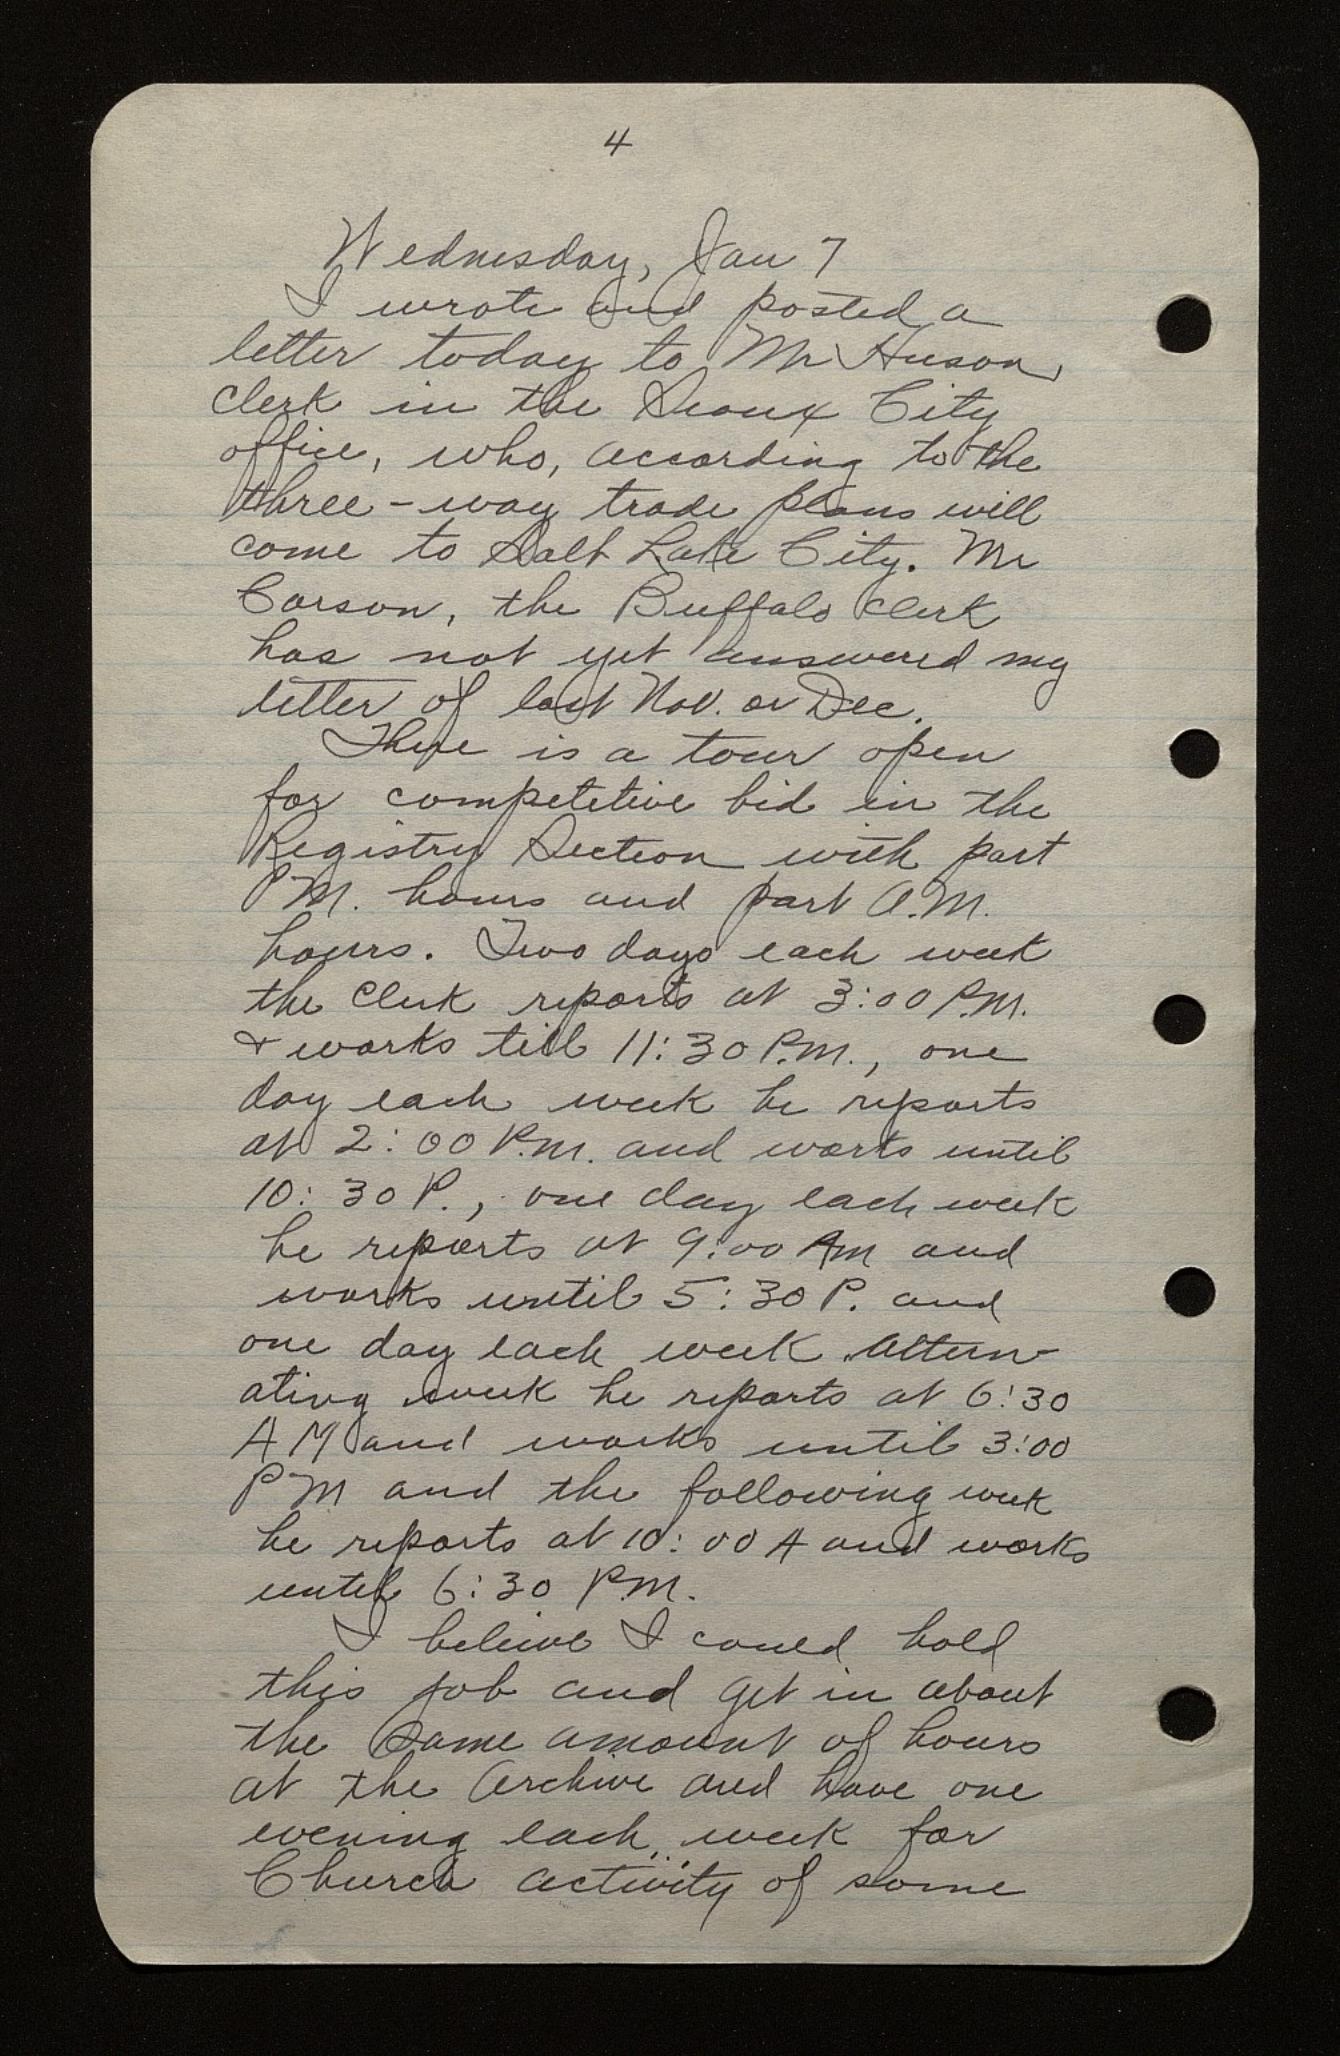 4
Wednesday, Jan 7
I wrote and posted a
letter today to Mr Huson,
clerk in the Sioux City
office, who, according to the
three-way trade plans will
come to Salt Lake City. Mr
Carson, the Buffalo clerk
has not yet answered my
letter of last Nov. or Dec.
There is a tour open
for competetive bid in the
Registry Section with part
P.M. hours and part A.M.
hours. Two days each week
the clerk reports at 3:00 P.M.
& works till 11:30 P.M., one
day each week he reports
at 2:00 P.M. and works until
10:30 P., one day each week
he reports at 9:00 AM and
works until 5:30 P. and
one day each week altern-
ating week he reports at 6:30
AM and works until 3:00
PM and the following week
he reports at 10:00 A and works
until 6:30 P.M.
I believe I could hold
this job and get in about
the same amount of hours
at the archive and have one
evening each week for
Church activity of some